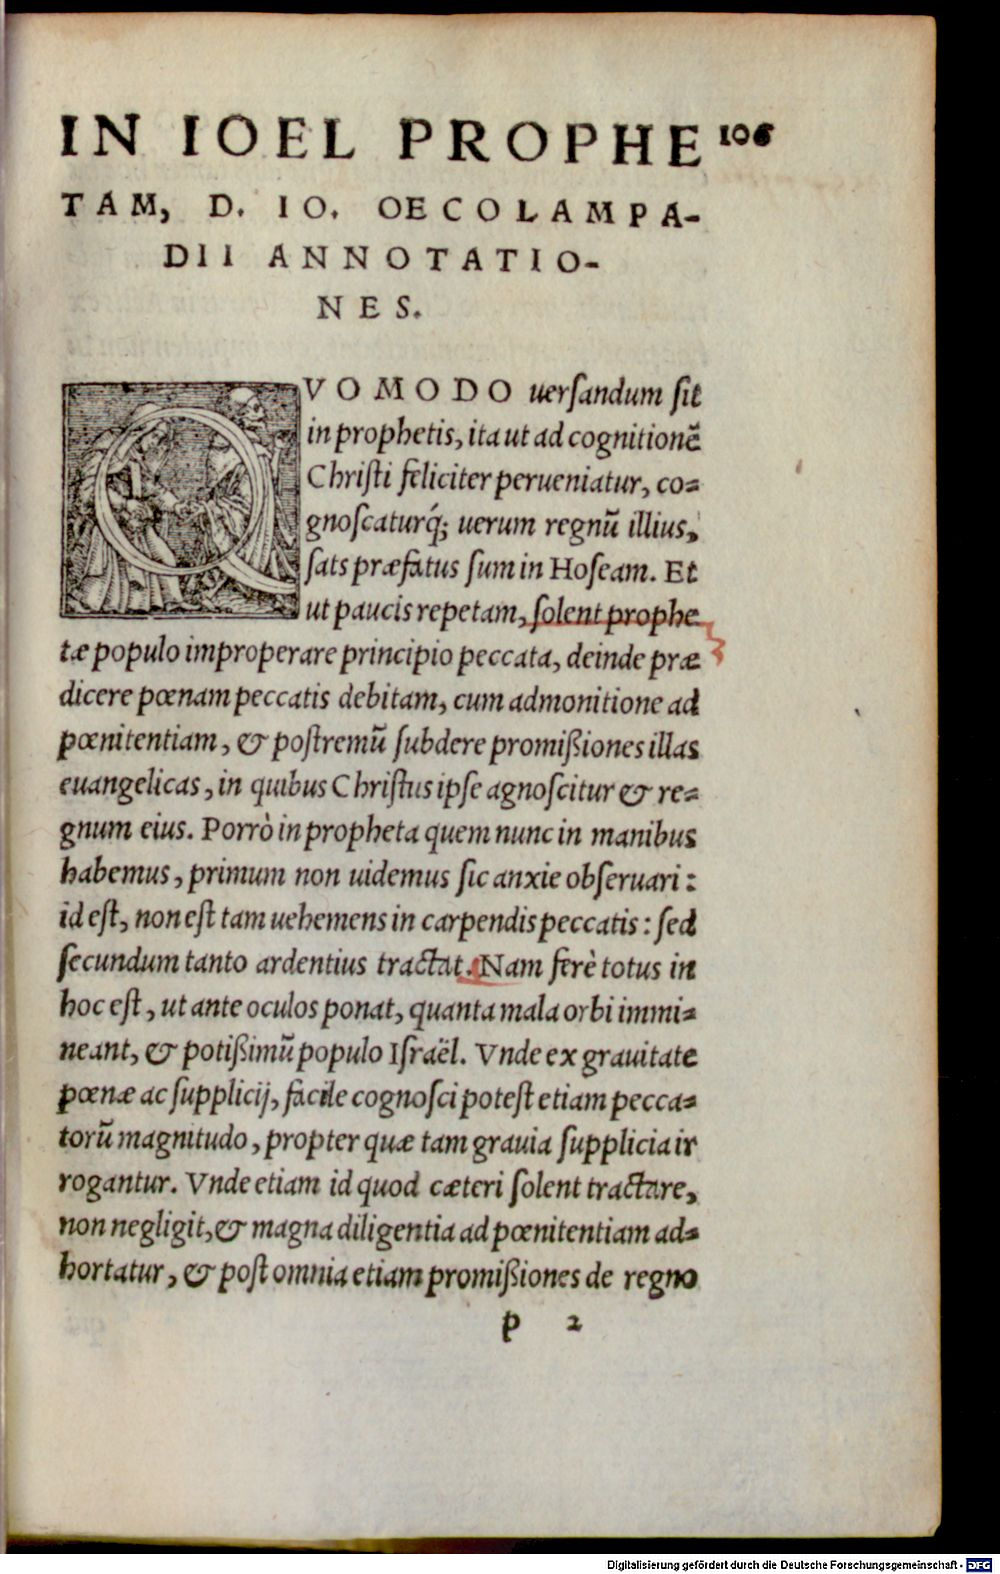 IN IOEL PROPHE 106
TAM, D. IO. OECOLAMPA-
DII ANNOTATIO-
NES.
QVOMODO uerſandum ſit
in prophetis, ita ut ad cognitionē
Chriſti feliciter perueniatur, co=
gnoſcaturq́; uerum regnū illius,
ſats præfatus ſum in Hoſeam. Et
ut paucis repetam, ſolent prophe
tæ populo improperare principio peccata, deinde præ
dicere pœnam peccatis debitam, cum admonitione ad
pœnitentiam, & poſtremū ſubdere promißiones illas
euangelicas, in quibus Chriſtus ipſe agnoſcitur & re=
gnum eius. Porrò in propheta quem nunc in manibus
habemus, primum non uidemus ſic anxie obſeruari:
id eſt, non eſt tam uehemens in carpendis peccatis: ſed
ſecundum tanto ardentius tractat. Nam ferè totus in
hoc eſt, ut ante oculos ponat, quanta mala orbi immi=
neant, & potißimū populo Iſraël. Vnde ex grauitate
pœnæ ac ſupplicij, facile cognoſci poteſt etiam pecca=
torū magnitudo, propter quæ tam grauia ſupplicia ir
rogantur. Vnde etiam id quod cæteri ſolent tractare,
non negligit, & magna diligentia ad pœnitentiam ad=
hortatur, & poſt omnia etiam promißiones de regno
p 2
Digitalisierung gefördert durch die Deutsche Forschungsgemeinschaft - DFG